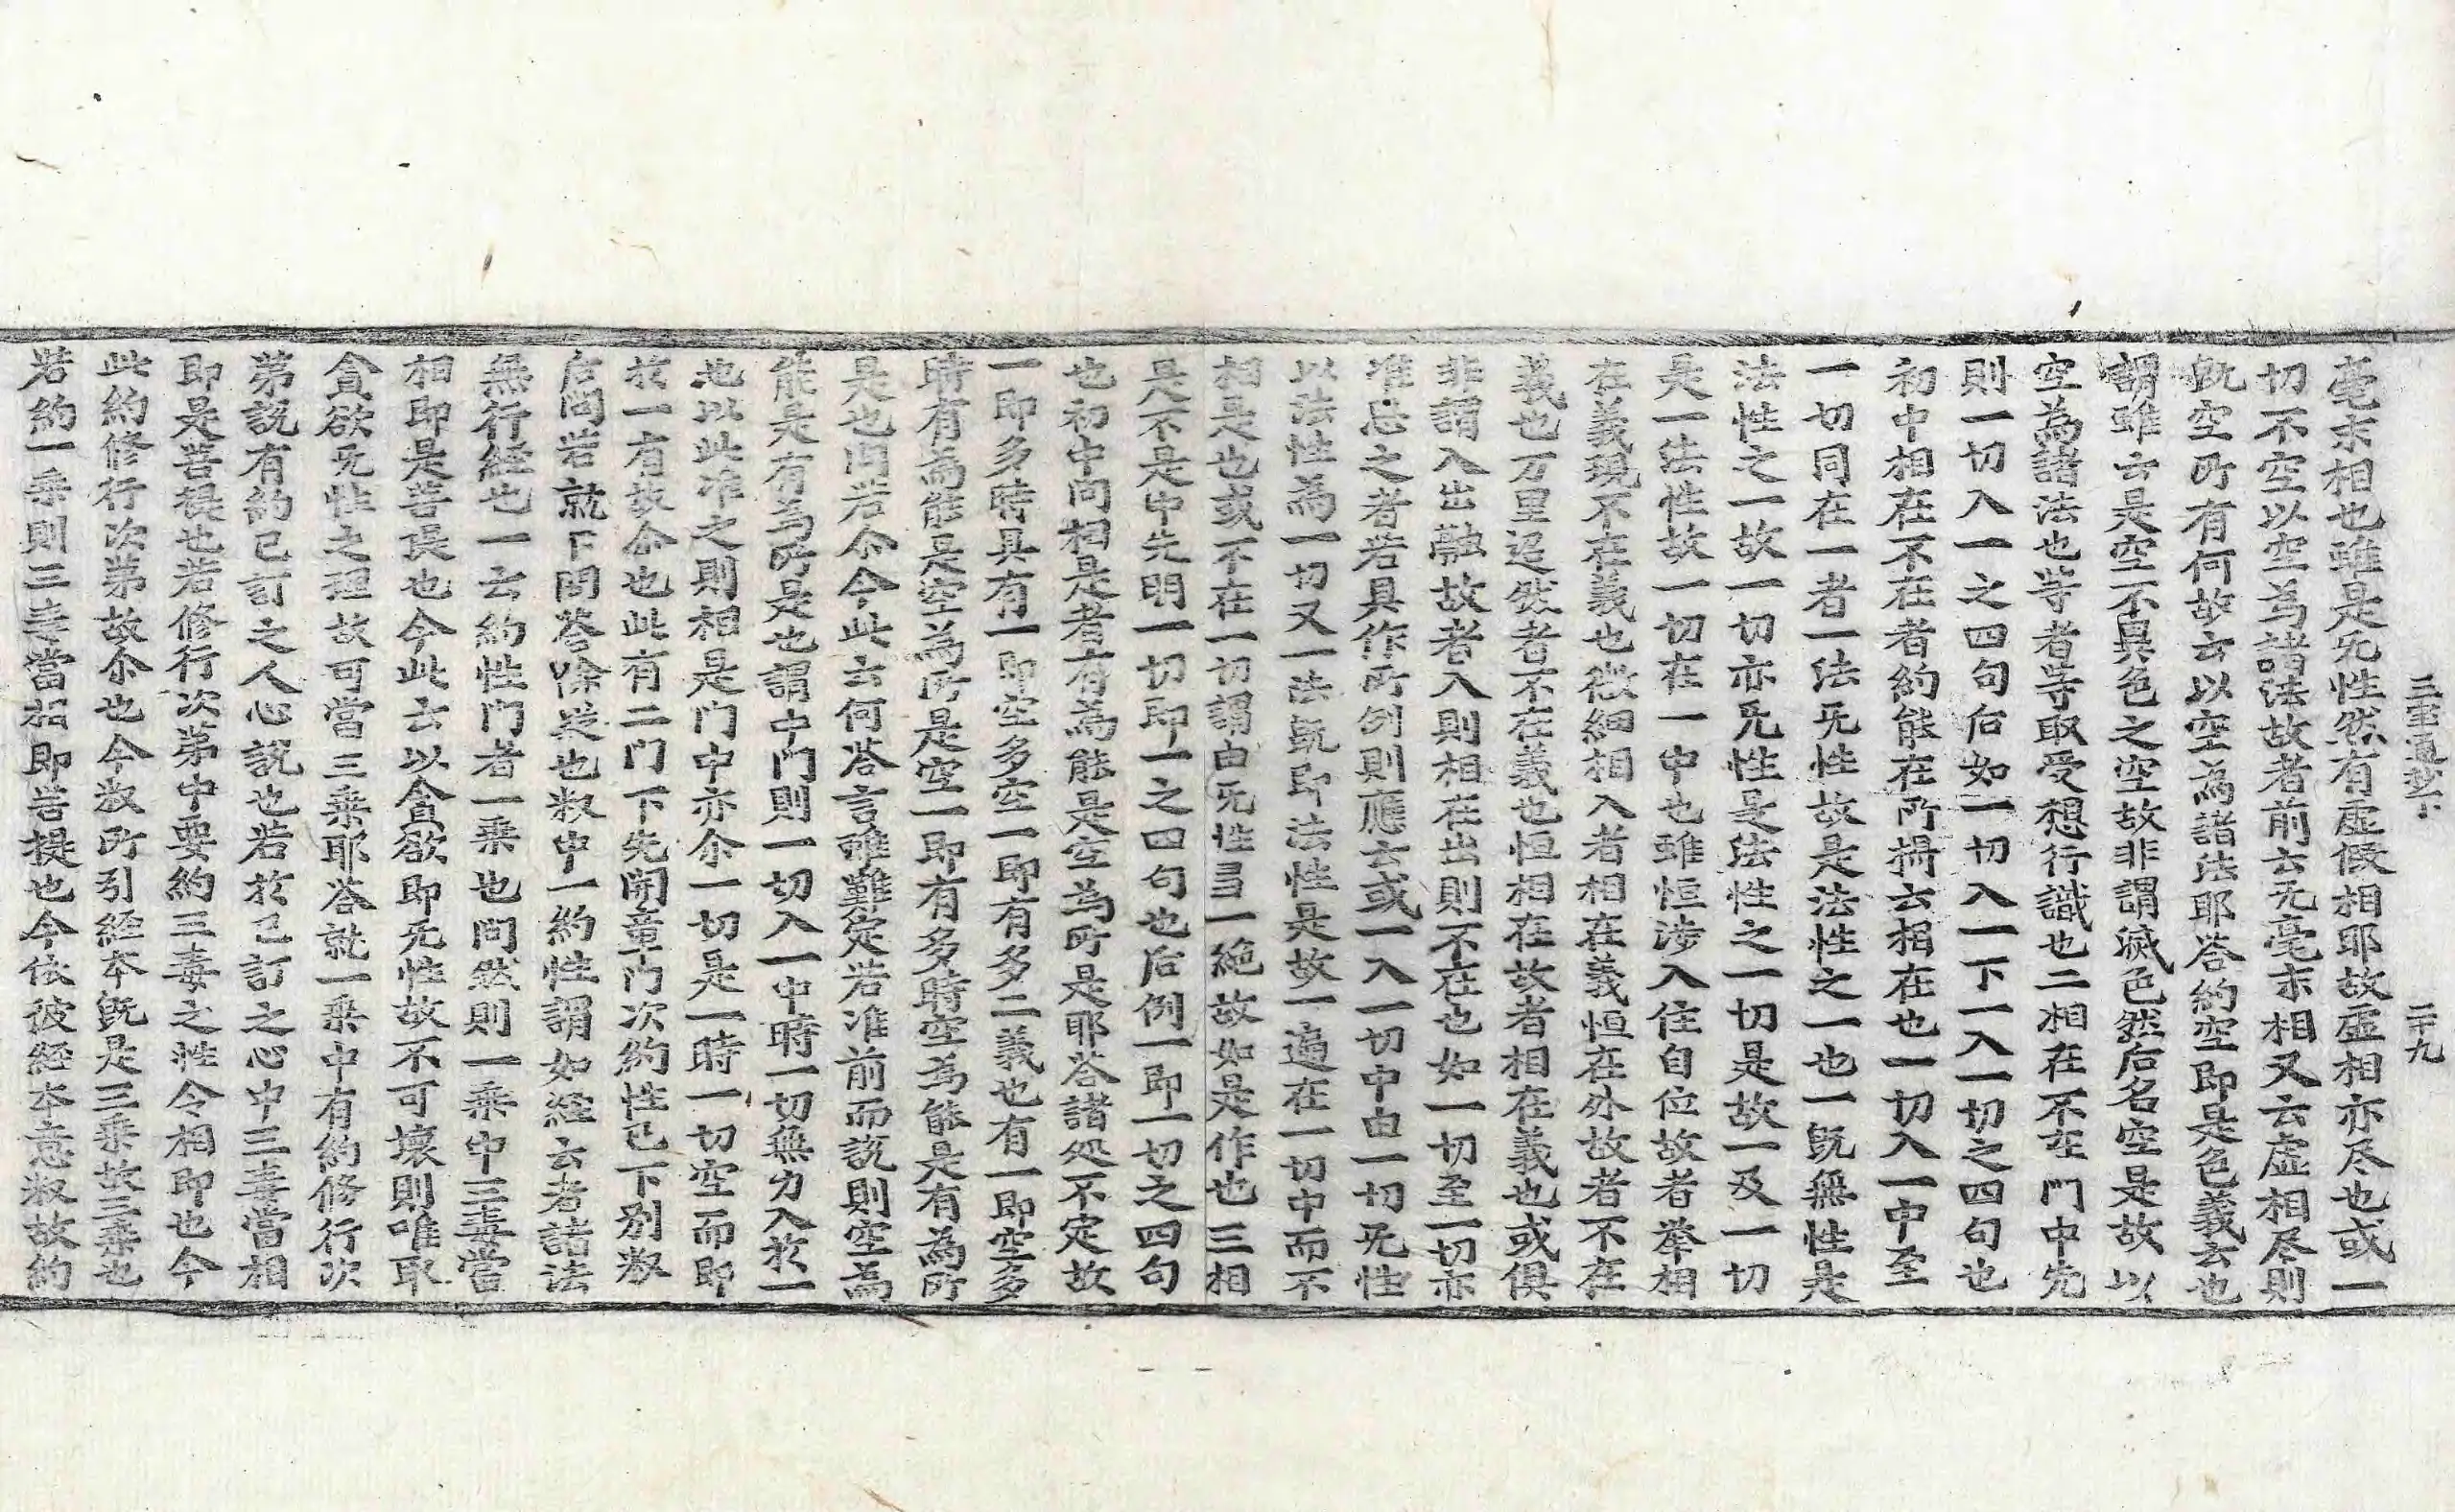 三宝通鈔下　二十九
毫末相也雖是旡性然有虛假相耶故虛相亦尽也或一
切不空以空為諸法故者前云无毫末相又云虛相尽則
旣空所有何故云以空為諸法耶荅約空即是色義云也
謂雖云是空不異色之空故非謂滅色然后名空是故以
空為諸法也等者等取受想行識也二相在不在門中先
則一切入一之四句后如一切入一下一入一切之四句也
初中相在不在者約能在所攝云相在也一切入一中至
一切同在一者一法旡性故是法性之一也一旣無性是
法性之一故一切亦旡性是法性之一切是故一及一切
是一法性故一切在一中也雖恒涉入住自位故者举相
在義現不在義也微細相入者相在義恒在外故者不在
義也万里迢然者不在義也恒相在故者相在義也或俱
非謂入出融故者入則相在出則不在也如一切至一切亦
准忘之者若具作所例則應云或一入一切中由一切旡性
以法性為一切又一法旣即法性是故一遍在一切中而不
相是也或不在一切謂由旡性一絶故如是作也三相
是不是中先明一切即一之四句也后例一即一切之四句
也初中问相是者有為能是空為所是耶荅諸処不定故
一即多時具有一即空多空一即有多二義也有一即空多
時有為能是空為所是空一即有多時空為能是有為所
是也问若尒今此云何荅言雖難定若准前而説則空為
能是有為所是也謂中門則一切入一中時一切無力入於一
也以此准之則相是门中亦尒一切是一時一切空而即
於一有故尒也此有二门下先開章门次約性已下别叙
后问若就下問荅除疑也叙中一約性謂如経云者諸法
無行経也一云約性門者一乘也问然則一乘中三毒當
相即是菩提也今此云以貪欲即旡性故不可壞則唯取
貪欲旡性之理故可當三乘耶荅就一乘中有約修行次
苐説有約已訂之人心説也若於已訂之心中三毒當相
即是菩提也若修行次苐中要約三毒之性令相即也今
此約修行次苐故尒也今叙所引経本旣是三乘故三乘也
若約一乘則三毒當相即菩提也今依彼経本意叙故約